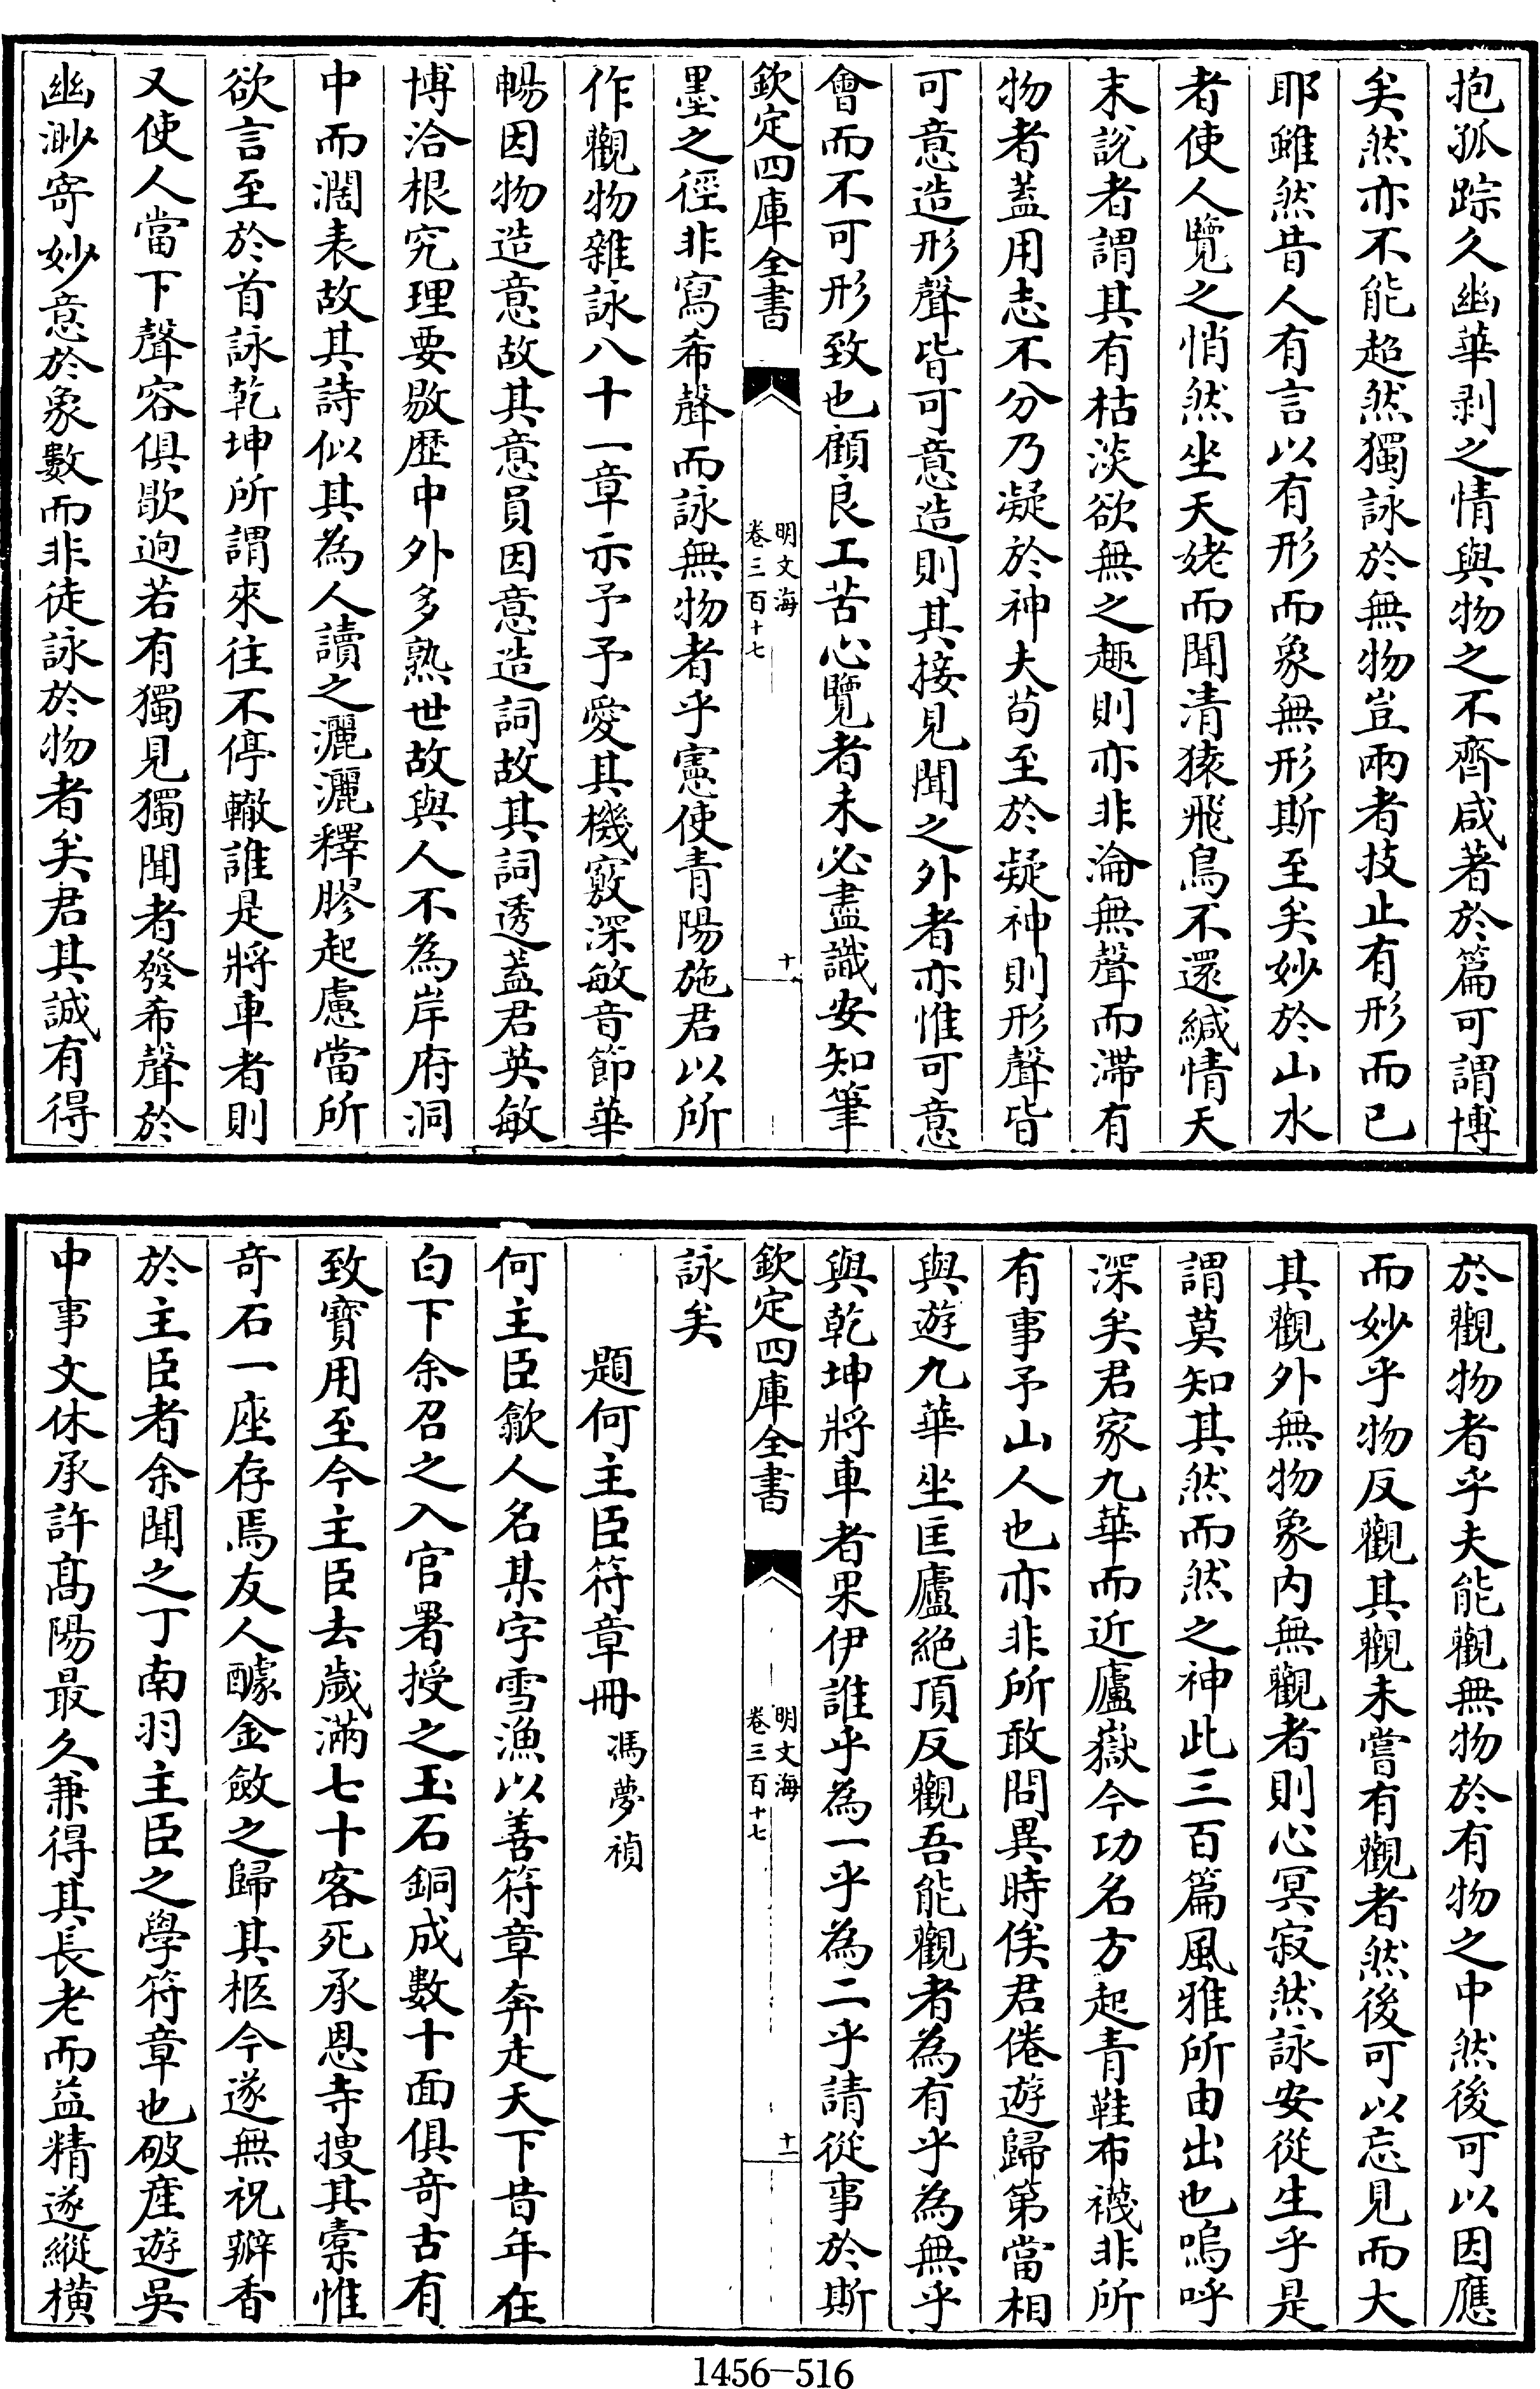 抱孤踪久幽華剥之情與物之不齊咸著於篇可謂博
矣然亦不能超然獨詠於無物豈兩者技止有形而已
耶雖然昔人有言以有形而象無形斯至矣妙於山水
者使人覽之悄然坐天姥而聞清猿飛鳥不還緘情天
末說者謂其有枯淡欲無之趣則亦非淪無聲而滯有
物者蓋用志不分乃凝於神夫苟至於凝神則形聲皆
可意造形聲皆可意造則其接見聞之外者亦惟可意
會而不可形致也顧良工苦心覽者未必盡識安知筆
欽定四庫全書
明文海
卷三百十七
十
墨之徑非寫希聲而詠無物者乎憲使青陽施君以所
作觀物雜詠八十一章示予予愛其機竅深敏音節華
暢因物造意故其意員因意造詞故其詞透蓋君英敏
博洽根究理要敭歷中外多熟世故與人不為岸府洞
中而濶表故其詩似其為人讀之灑灑釋膠起慮當所
欲言至於首詠乾坤所謂來往不停轍誰是將車者則
又使人當下聲容俱歇逈若有獨見獨聞者發希聲於
幽渺寄妙意於象數而非徒詠於物者矣君其誠有得
於觀物者乎夫能觀無物於有物之中然後可以因應
而妙乎物反觀其觀未嘗有觀者然後可以忘見而大
其觀外無物象内無觀者則心冥寂然詠安從生乎是
謂莫知其然而然之神此三百篇風雅所由出也嗚呼
深矣君家九華而近廬嶽今功名方起青鞋布襪非所
有事予山人也亦非所敢問異時俟君倦遊歸第當相
與遊九華坐匡廬絶頂反觀吾能觀者為有乎為無乎
與乾坤將車者果伊誰乎為一乎為二乎請從事於斯
欽定四庫全書
明文海
卷三百十七
十一
詠矣
題何主臣符章冊 馮夢禎
何主臣歙人名某字雪漁以善符章奔走天下昔年在
白下余召之入官署授之玉石銅成數十面俱奇古有
致寶用至今主臣去歲滿七十客死承恩寺搜其橐惟
奇石一座存焉友人醵金斂之歸其柩今遂無祝辦香
於主臣者余聞之丁南羽主臣之學符章也破產遊吳
中事文休承許高陽最久兼得其長老而益精遂縱橫
1456-516